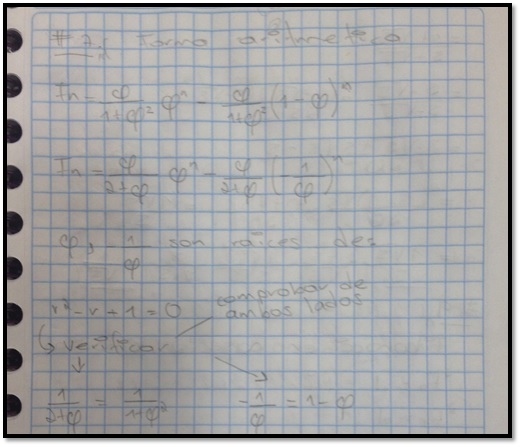 # 7: Forma aritmetica
Fn = φ/(1+φ²) φⁿ - φ/(1+φ²) (1-φ)ⁿ
Fn = φ/(2+φ) φⁿ - φ/(2+φ) (-1/φ)ⁿ
φ, -1/φ son raíces de:
r² - r + 1 = 0
comprobar de
ambos lados
↳ verificar
1/(2+φ) = 1/(1+φ²)    -1/φ = 1-φ